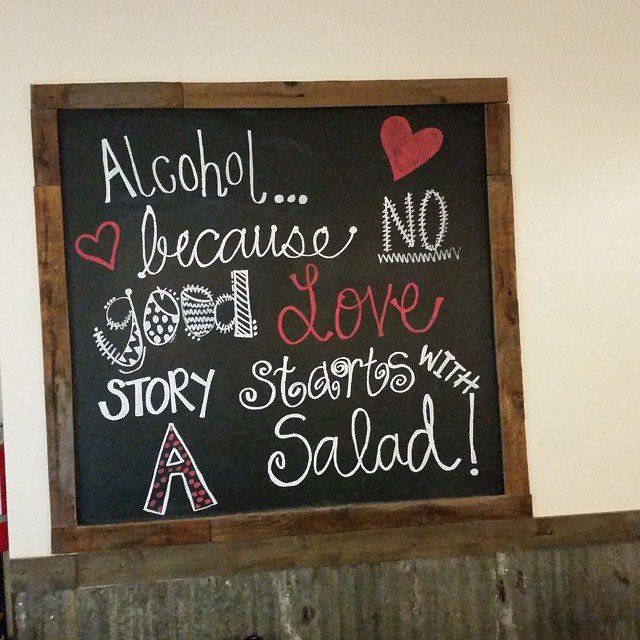 Alcohol...
because NO
good Love
STORY starts WITH
A Salad!